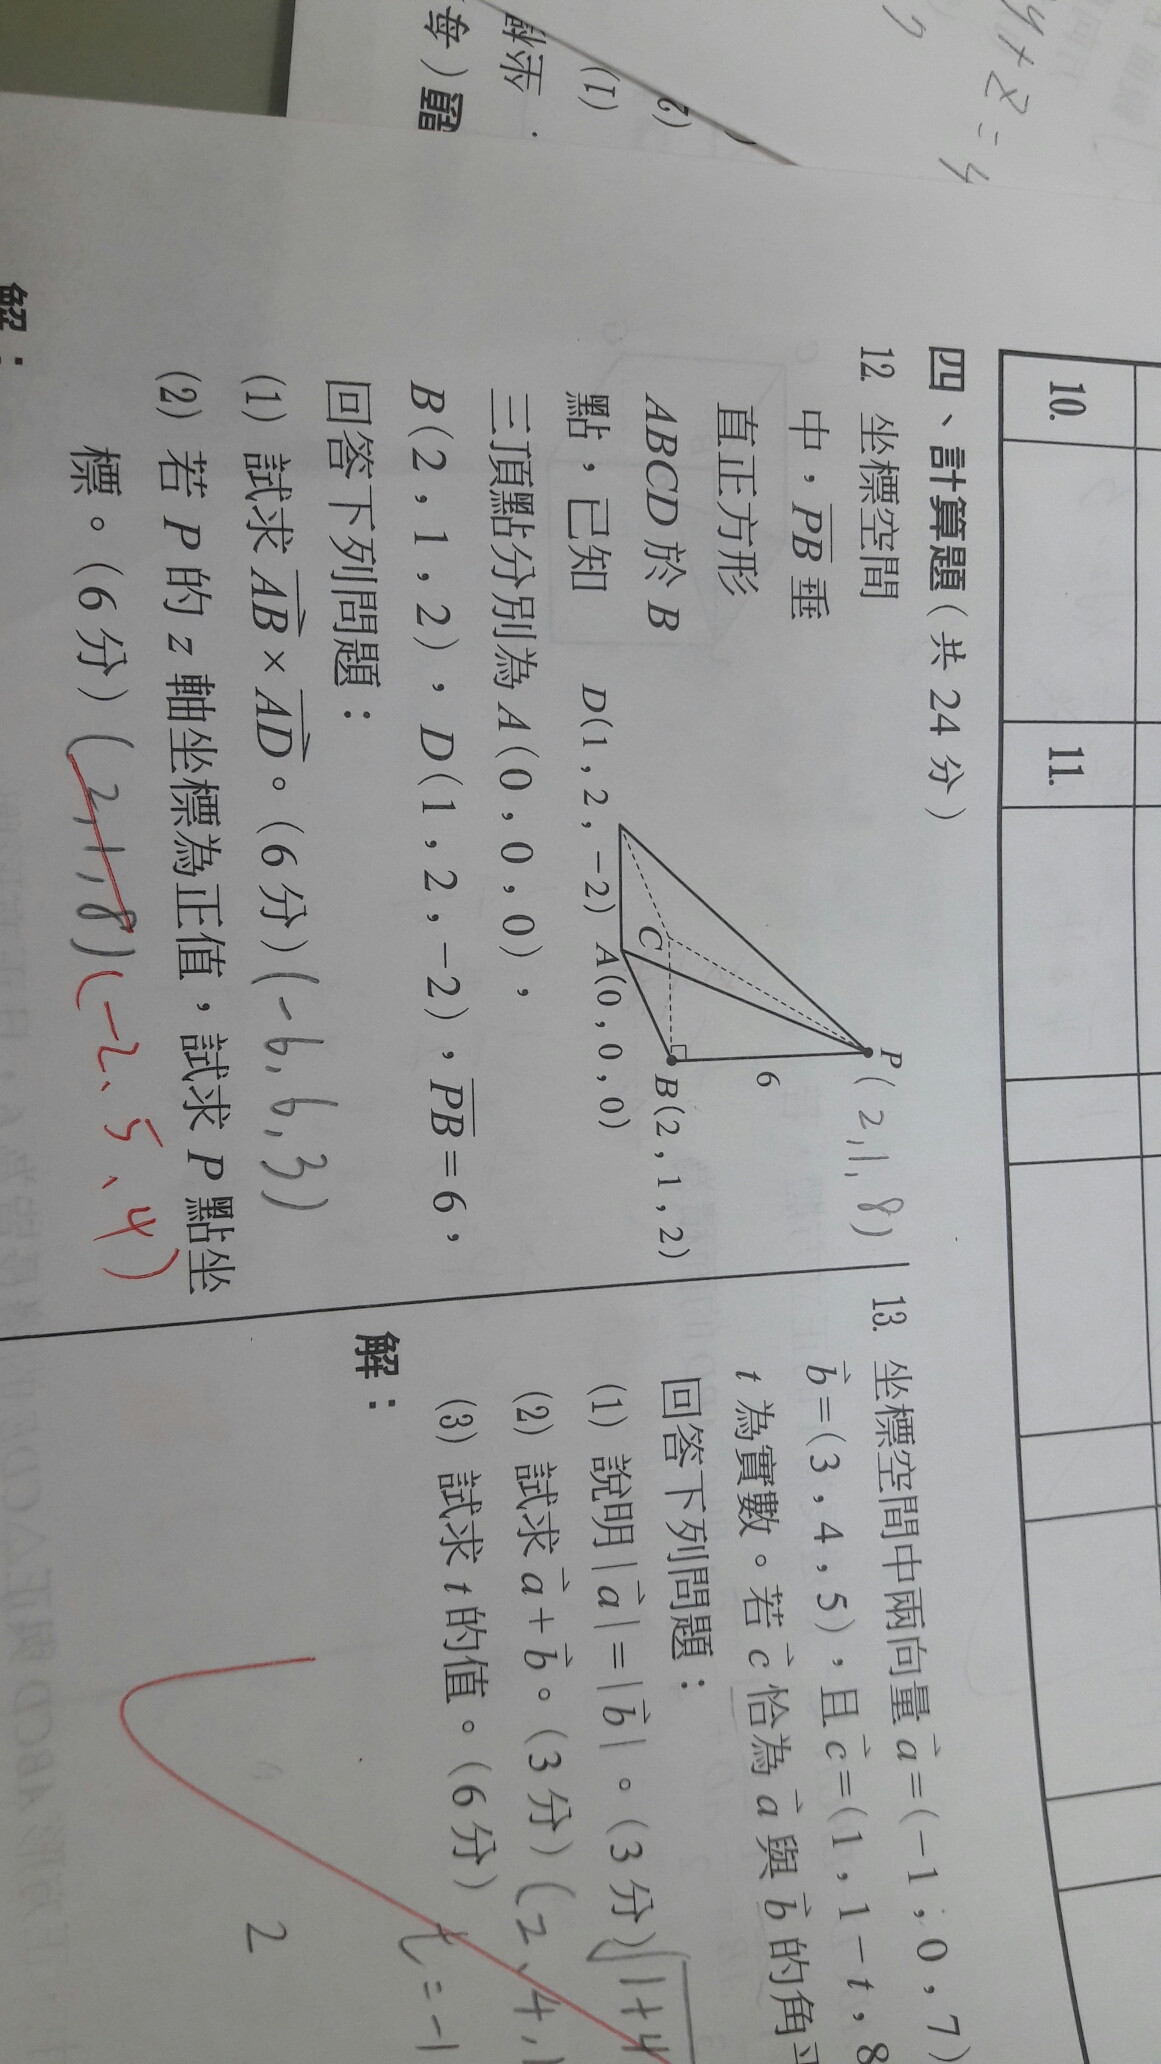 y+z=4
(1)
10.
11.
四、計算題(共 24 分)
12. 坐標空間
中，PB 垂
直正方形
ABCD 於 B
點，已知
三頂點分別為 A(0,0,0)，
B(2,1,2)，D(1,2,-2)，PB=6，
回答下列問題：
(1) 試求 AB×AD。(6 分) (-6,6,3)
(2) 若 P 的 z 軸坐標為正值，試求 P 點坐
標。(6 分) (2,1,8) (-2、5、4)
解：
P (2,1,8)
6
B(2,1,2)
C
A(0,0,0)
D(1,2,-2)
13. 坐標空間中兩向量 a=(-1,0,7)
b=(3,4,5)，且 c=(1,1-t,8
t 為實數。若 c 恰為 a 與 b 的角平
回答下列問題：
(1) 說明 |a|=|b|。(3 分) √1+4
(2) 試求 a+b。(3 分) (2、4,1
(3) 試求 t 的值。(6 分) t=-1
解：
2